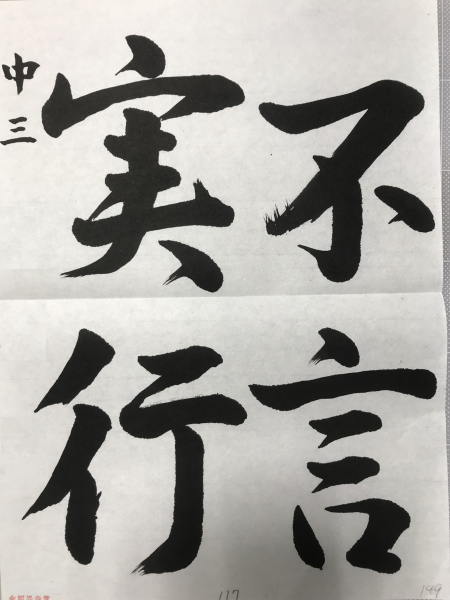 不言
実行
中三
117
199